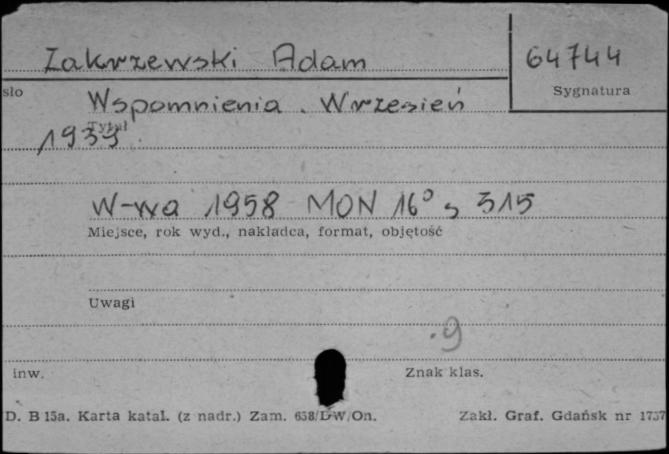 Zakrzewski Adam 64744
Sygnatura
sło
Wspomnienia. Wrzesień
Tytuł
1939.
W-wa 1958 MON 16° s 315
Miejsce, rok wyd., nakładca, format, objętość
Uwagi
.9
inw. Znak klas.
D. B 15a. Karta katal. (z nadr.) Zam. 658/DW/On. Zakł. Graf. Gdańsk nr 1737